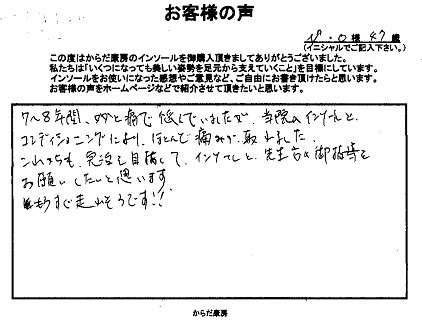 お客様の声
様 47 歳
(イニシャルでご記入下さい。)
この度はからだ康房のインソールを御購入頂きましてありがとうございました。
私たちは「いくつになっても美しい姿勢を足元から支えていくこと」を目標にしています。
インソールをお使いになった感想やご意見など、ご自由にお書き頂けたらと思います。
お客様の声をホームページなどで紹介させて頂きたいと思います。
7〜8年間、 痛で悩んでいましたが、当院のインソールと、
コンディショニングにより、ほとんど痛みが取れました。
これからも、完治を目指して、インソールと、先生方の御指導を
お願いしたいと思います。
もうすぐ走れそうです!!
からだ康房